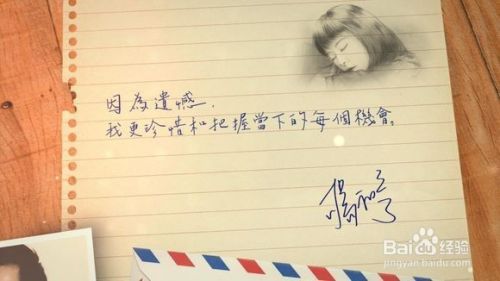 因為遺憾,
我更珍惜和把握當下的每個機會。
Bai du 经验
jingyan.baidu.com